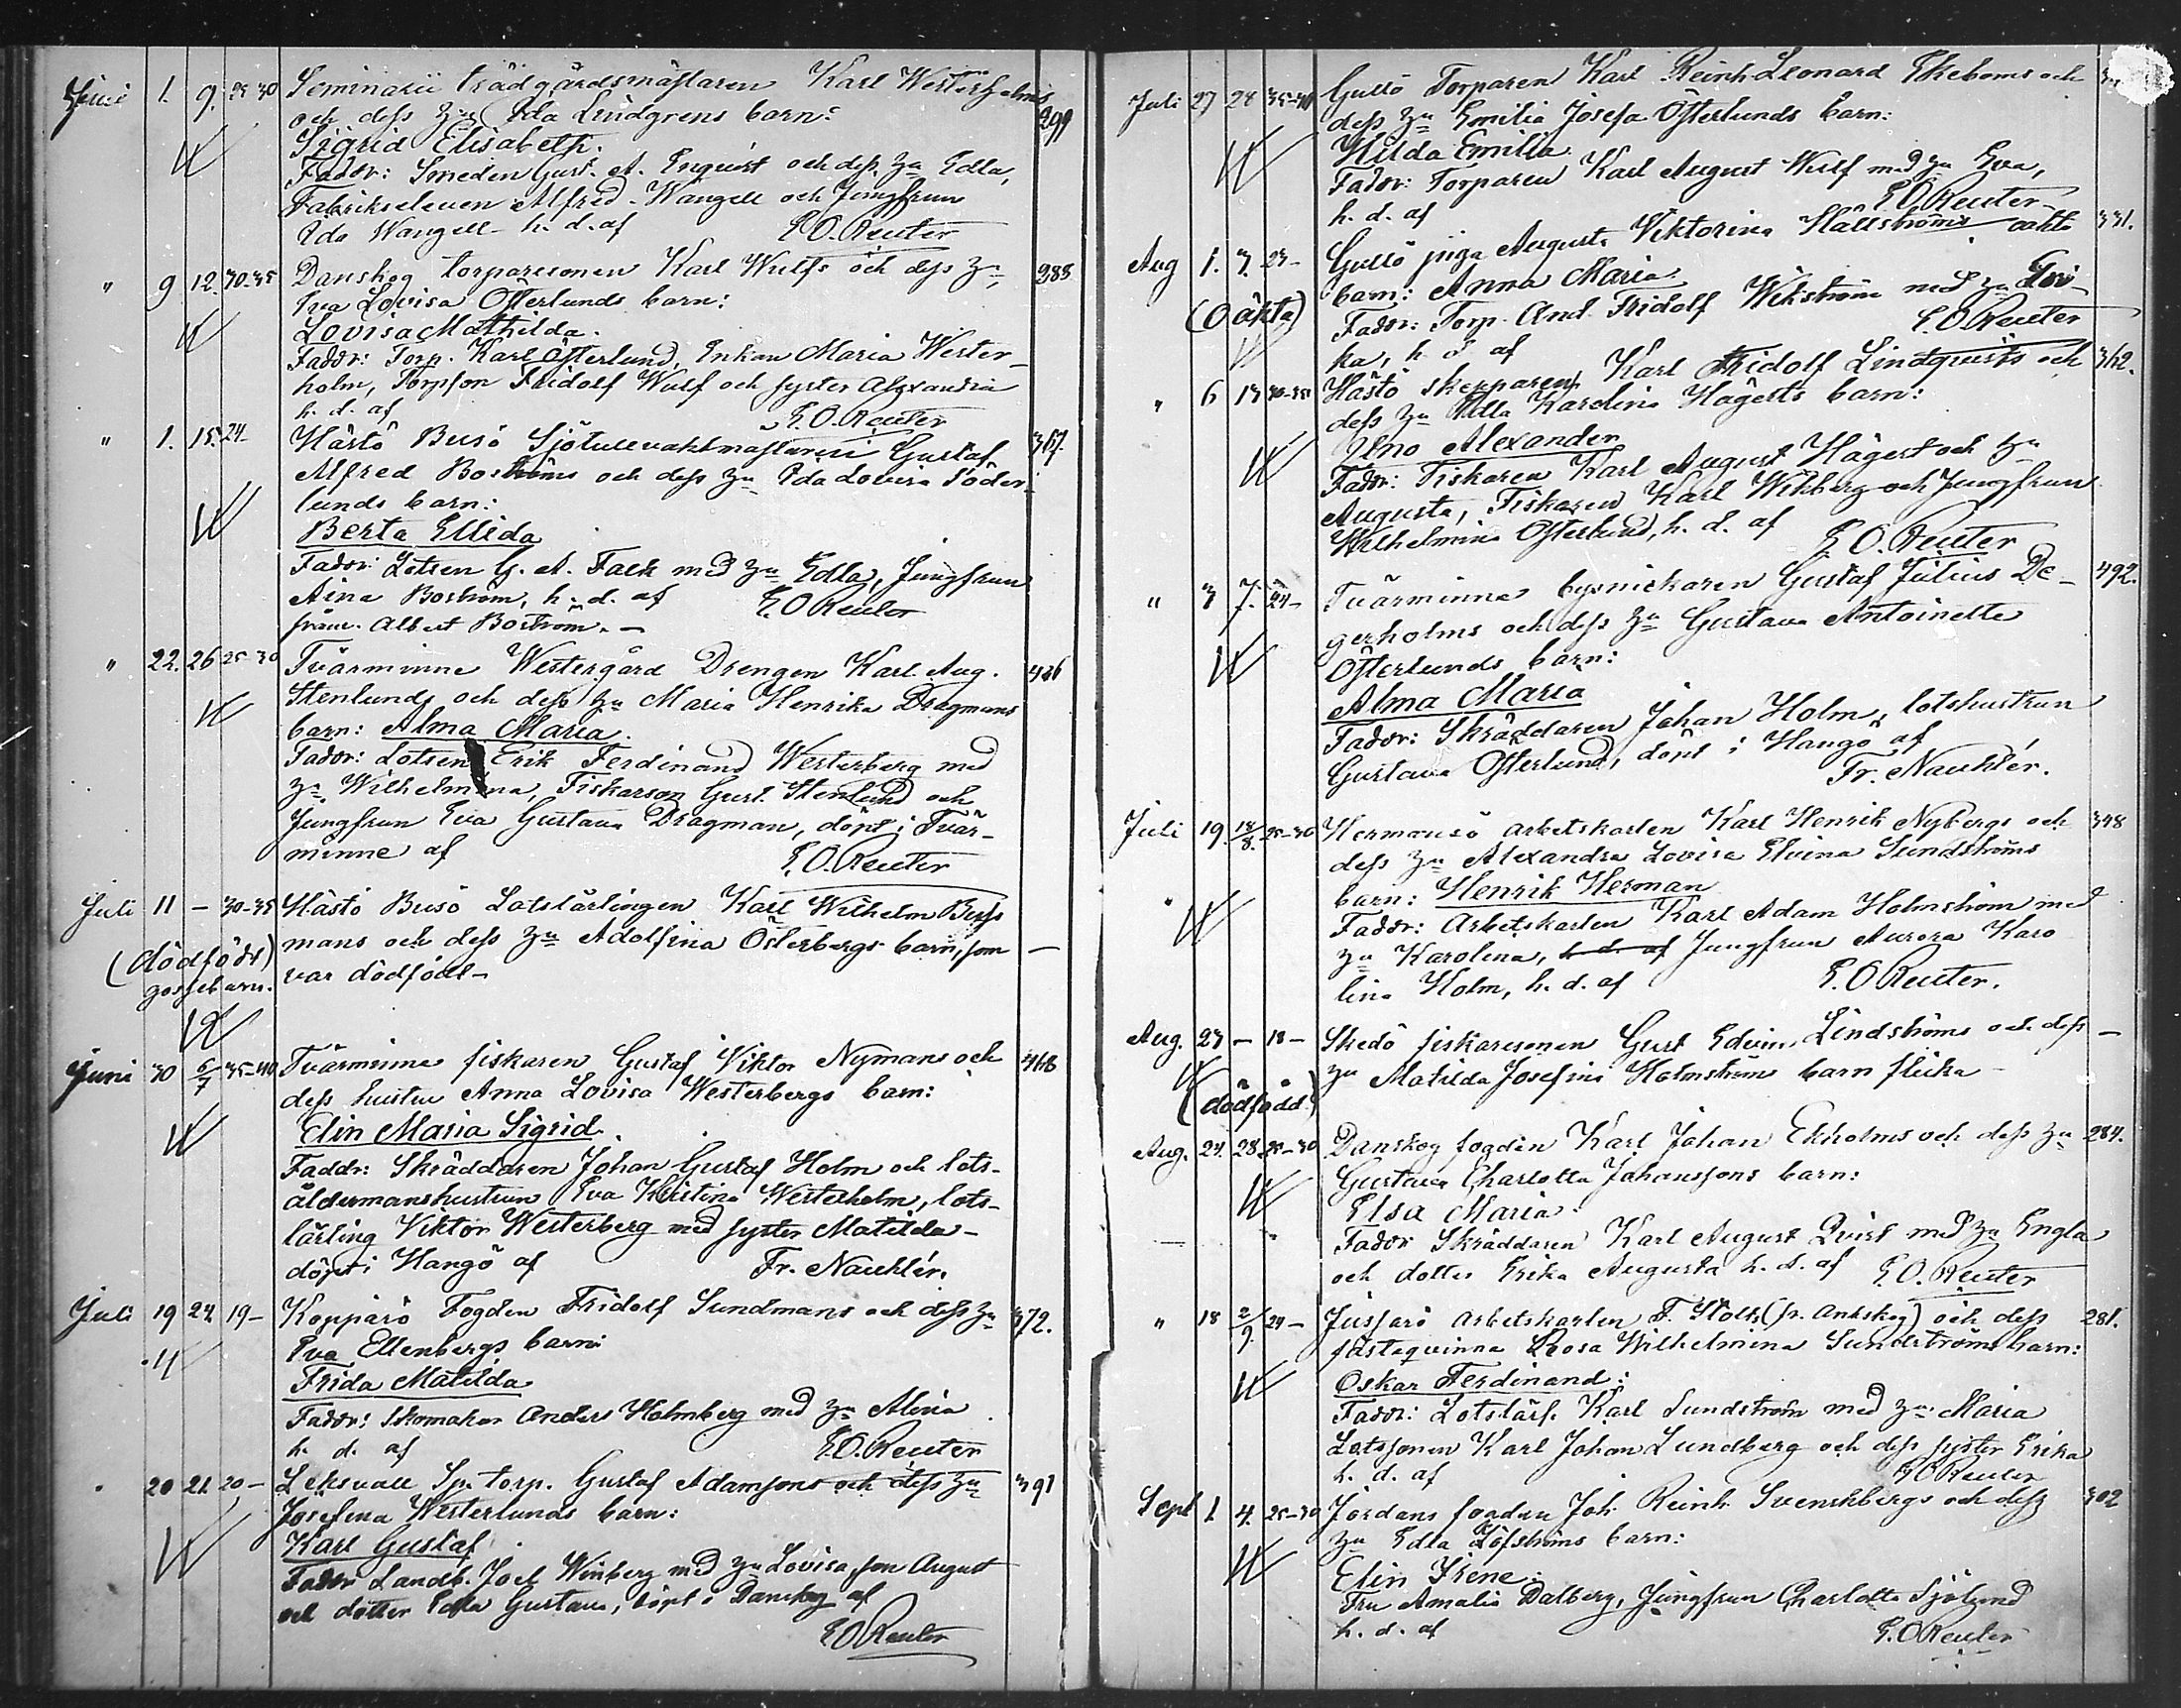 Juni 1. 9. 25-30 Seminarii trädgårdsmästaren Karl Westerholms 299
och dess hu Ida Lindgrens barn:
Sigrid Elisabeth.
Faddr: Smeden Gust. A. Enquist och dess hu Edla,
Fabrikseleven Alfred Wangell och Jungfrun
Ida Wangell h. d. af E.O. Reuter
" 9 12. 30-35 Danskog torparesonen Karl Wulfs och dess hu 288
Eva Lovisa Österlunds barn:
Lovisa Mathilda.
Faddr: Torp. Karl Österlund, Enkan Maria Wester-
holm, Torpson Fridolf Wulf och syster Alexandra
h. d. af E.O. Reuter
" 1. 15. 24- Hästö Busö Sjötullvaktmästaren Gustaf 367.
Alfred Boströms och dess hu Ida Lovisa Söder-
lunds barn:
Berta Ellida
Faddr: Lotsen G. A. Falk med hu Edla, Jungfrun
Aina Boström, h. d. af E.O. Reuter
Albert Boström. -
" 22. 26 25-30 Tvärminne Westergård Drengen Karl Aug. 436
Stenlunds och dess hu Maria Henrika Dragmans
barn: Alma Maria.
Faddr: Lotsen Erik Ferdinand Westerberg med
hu Wilhelmina, Fiskarson Gust. Stenlund och
Jungfrun Eva Gustava Dragman, döpt i Tvär-
minne af E.O. Reuter
Juli 11 - 30-35 Hästö Busö Lotslärlingen Karl Wilhelm Buss-
(dödfödt) mans och dess hu Adolfina Österbergs barn, som -
gossebarn. var dödfödt -
Juni 30 6/7 35-40 Tvärminne fiskaren Gustaf Viktor Nymans och 468
dess hustru Anna Lovisa Westerbergs barn:
Elin Maria Sigrid.
Faddr: Skräddaren Johan Gustaf Holm och lots-
åldermanshustrun Eva Kristina Westerholm, lots-
lärling Viktor Westerberg med syster Matilda -
döpt i Hangö af Fr. Nauklér.
Juli 19 24 19- Kopparö Fogden Fridolf Sundmans och dess hu 372.
Eva Ellenbergs barn:
Frida Matilda
Faddr: Skomakar Anders Holmberg med hu Alina
h. d. af E.O. Reuter
" 20 21. 20- Leksvall torp. Gustaf Adamsons och dess hu 391
Josefina Westerlunds barn:
Karl Gustaf
Faddr Landb. Joel Winberg med hu Lovisa, son August
och dotter Edla Gustava, döpt i Danskog af
E.O. Reuter
Juli 27 28 35-40 Gullö Torparen Karl Reinh. Leonard Ekeboms och
dess hu Emilia Josefa Österlunds barn:
Hilda Emilia
Faddr: Torparen Karl August Wulf med hu Eva,
h. d. af E.O. Reuter
Aug 1. 7. 23- Gullö piga Augusta Viktorina Hällströms oäkta 331.
barn: Anna Maria
(Oäkta) Faddr: Torp. And. Fridolf Wikström med hu Lovi-
ka, h. d. af E.O. Reuter
" 6 13 30-35 Hästö skepparen Karl Fridolf Lindqvists och 362.
dess hu Edla Karolina Hägerts barn:
Uno Alexander
Faddr: Fiskaren Karl August Hägert och hu
Augusta, Fiskaren Karl Wikberg och Jungfrun
Wilhelmina Österlund, h. d. af E.O. Reuter
" 3 7. 24- Tvärminne bysnickaren Gustaf Julius De- 492.
gerholms och dess hu Gustava Antoinette
Österlunds barn:
Alma Maria
Faddr: Skräddaren Johan Holm, lotshustrun
Gustava Österlund, döpt i Hangö af
Fr. Nauklér.
Juli 19. 18/8. 25-30 Hermansö arbetskarlen Karl Henrik Nybergs och 348
dess hu Alexandra Lovisa Elvina Sundströms
barn: Henrik Herman
Faddr: Arbetskarlen Karl Adam Holmström med
hu Karolina, h. d. af Jungfrun Aurora Karo
lina Holm, h. d. af E.O. Reuter.
Aug. 23 - 18- Skedö fiskaresonen Gust Edvin Lindströms och dess -
hu Matilda Josefina Holmströms barn flicka -
(dödfödd)
Aug. 24. 28. 25-30 Danskog fogden Karl Johan Ekholms och dess hu 284.
Gustava Charlotta Johanssons barn:
Elsa Maria.
Faddr Skräddaren Karl August Qvist med hu Engla
och dotter Erika Augusta h. d. af E.O. Reuter
" 18 2/9. 24- Jussarö arbetskarlen F. Holts (fr. Antskog) och dess 281.
fästeqvinna Rosa Wilhelmina Sundströms barn:
Oskar Ferdinand:
Faddr: Lotslärl. Karl Sundström med hu Maria
Lotssonen Karl Johan Lundberg och dess syster Erika
h. d. af E.O. Reuter
Sept 1 4. 25-30 Jordans fogden Joh. Reinh. Svenskbergs och dess 302
hu Edla Löfströms barn:
Elin Irene:
Fru Amalia Dalberg, Jungfrun Charlotta Sjölund
h. d. af E.O. Reuter